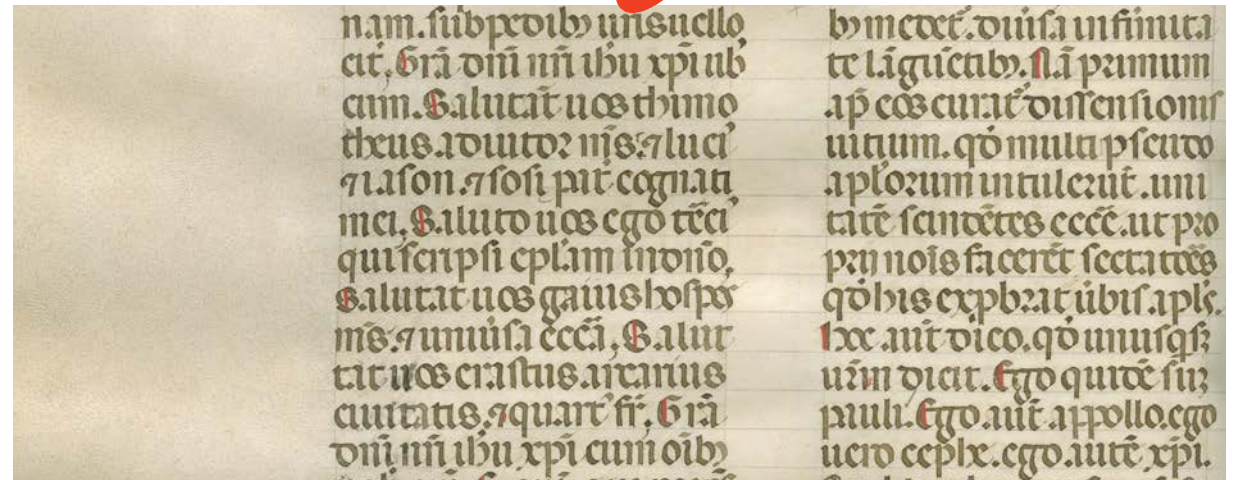 nam. sub pedib; ur̄is uelilo
cit̓. Grā dn̄i nr̄i ih̄u xp̄i uob̓
cum. Salutat̄ uos thimo
theus. adiutor m̄s. ⁊ luci̓
⁊ iason. ⁊ sosi pat̓ cognati
mei. Saluto uos ego t̄ēci̓
qui scripsi epl̄am in dn̄o.
Salutat uos gaius hospes
m̄s. ⁊ uniūsa ecc̄a. Salut
tat uos erastus. arcarius
ciuitatis. ⁊ quart̓ fr̄. Grā
dn̄i nr̄i ih̄u xp̄i cum oīb;
b; medet̓. diuisa infirmita
te lāgūētib;. Nā primum
ap̄ eos curat̓ dissensionis
uitium. qd̄ multi pseudo
ap̄lorum intulerūt. uni
tatē scindētes ecc̄ē. ut pro
prij noīs facerēt sectatoēs
qd̄ his exprobrat ūbis. apl̄s.
hoc aut̄ dico. qd̄ unusq̄sq;
ur̄m dicit. Ego quidē suꝫ
pauli. Ego. aut̄ appollo. ego
uero cephe. ego. autē xp̄i.